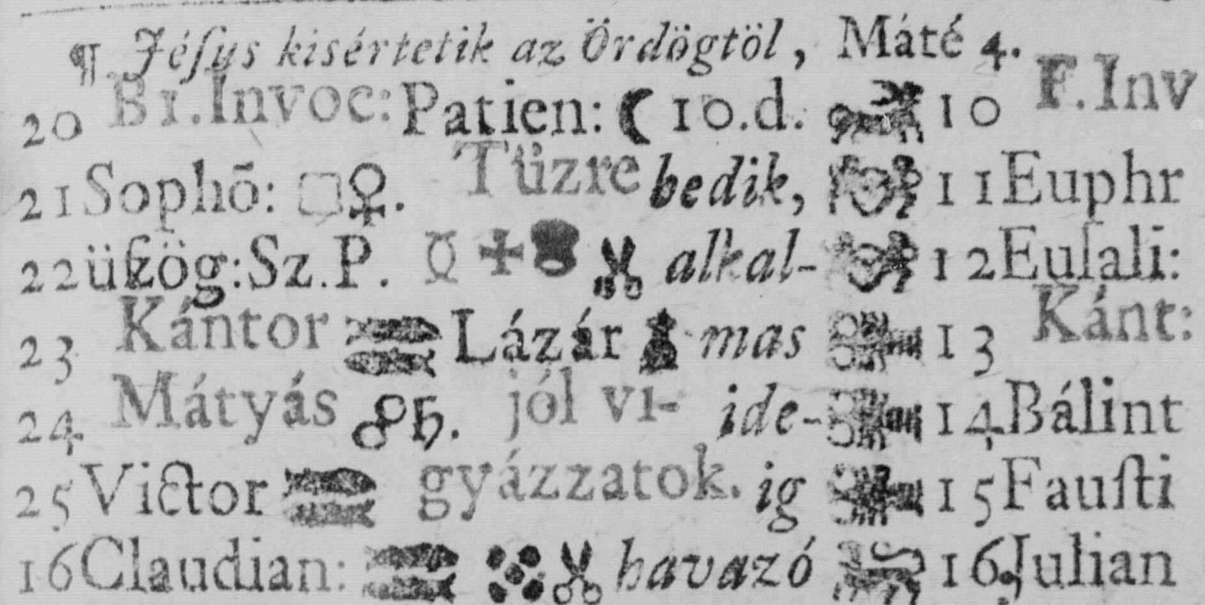 ¶. Jéſus kisértetik az Ördögtöl, Máté 4.
20 B1.Invoc: Patien: ☾ 10.d. 10 F.Inv
21 Sophō: □♀. Tüzre bedik, 11 Euphr
22 üſzög: Sz.P. ☿ ✠ ✂ alkal- 12 Euſali:
23 Kántor Lázár mas 13 Kánt:
24 Mátyás ☍♄. jól vi- ide- 14 Bálint
25 Victor gyázzatok. ig 15 Fauſti
16 Claudian: ✂ havazó 16 Julian